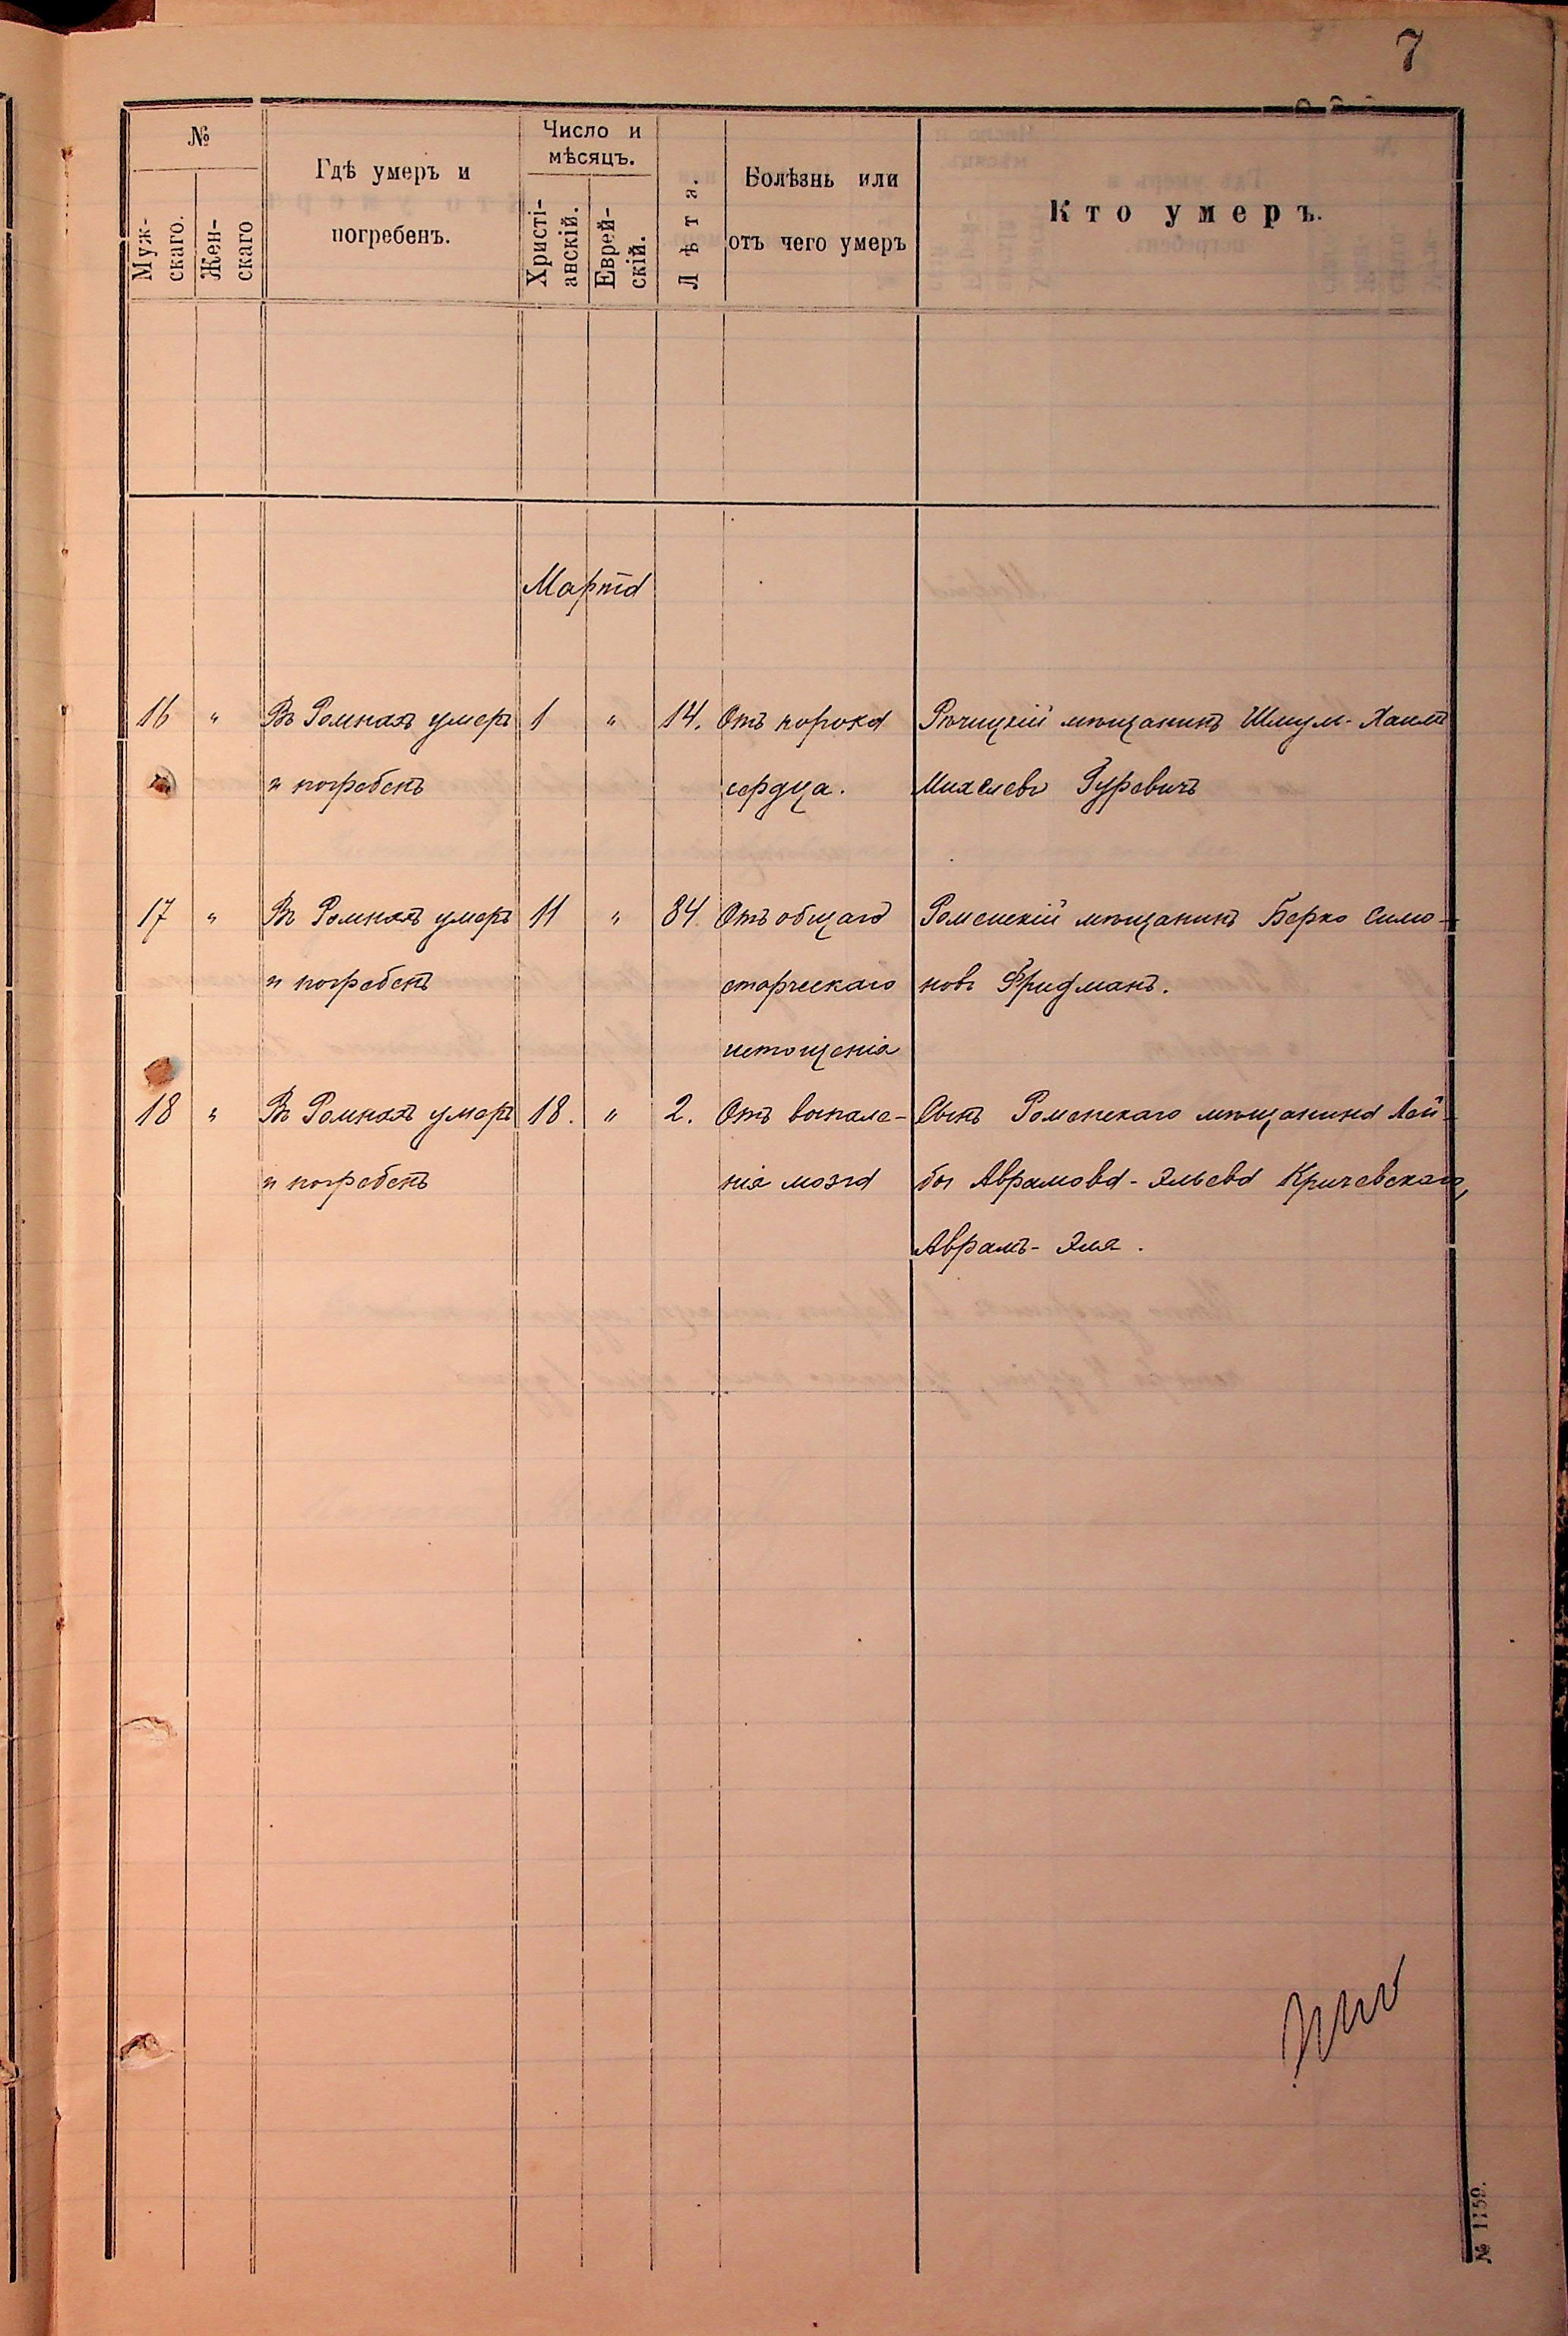 7
№
Муж-
скаго.
Жен-
скаго
Гдѣ умеръ и
погребенъ.
Число и
мѣсяцъ.
Христі-
анскій.
Еврей-
скій.
Лѣта.
Болѣзнь или
отъ чего умеръ
Кто умеръ.
Марта
16 " Въ Ромнахъ умеръ 1 " 14. Отъ порока Рѣчицкій мѣщанинъ Шмул-Хаимъ
и погребенъ сердца. Михелевъ Гуревичъ
17 " Въ Ромнахъ умеръ 11 " 84 Отъ общаго Роменскій мѣщанинъ Берко Симо-
и погребенъ старческаго новъ Фридманъ.
истощенія
18 " Въ Ромнахъ умеръ 18. " 2. Отъ воспале- Сынъ Роменскаго мѣщанина Лей-
и погребенъ нія мозга бы Аврамова-Эльева Кричевскаго,
Аврамъ-Эля.
№ 1159.